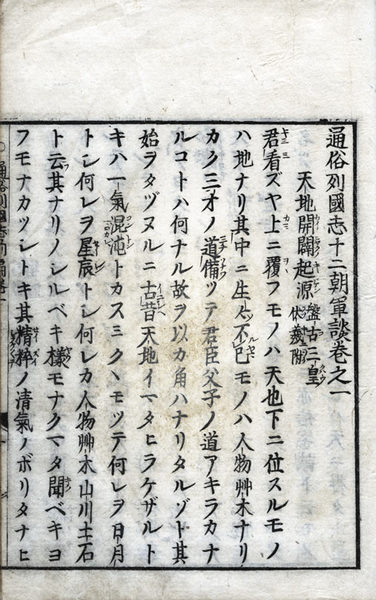 通俗列國志十二朝軍談卷之一
天地開闢起源 盤古三皇 伏羲附
君看ズヤ上ニ覆フモノハ天也下ニ位スルモノ
ハ地ナリ其中ニ生〻不已モノハ人物艸木ナリ
カク三才ノ道備ツテ君臣父子ノ道アキラカナ
ルコトハ何ナル故ヲ以カ角ハナリタルゾト其
始ヲタヅヌルニ古昔天地イマタヒラケザルト
キハ一氣混沌トカスミクヽモツテ何レヲ日月
トシ何レヲ星辰トシ何レカ人物艸木山川土石
ト云其ナリノシルベキ樣モナクマタ聞ベキヨ
フモナカツシトキ其精粹ノ清氣ノボリタナヒ